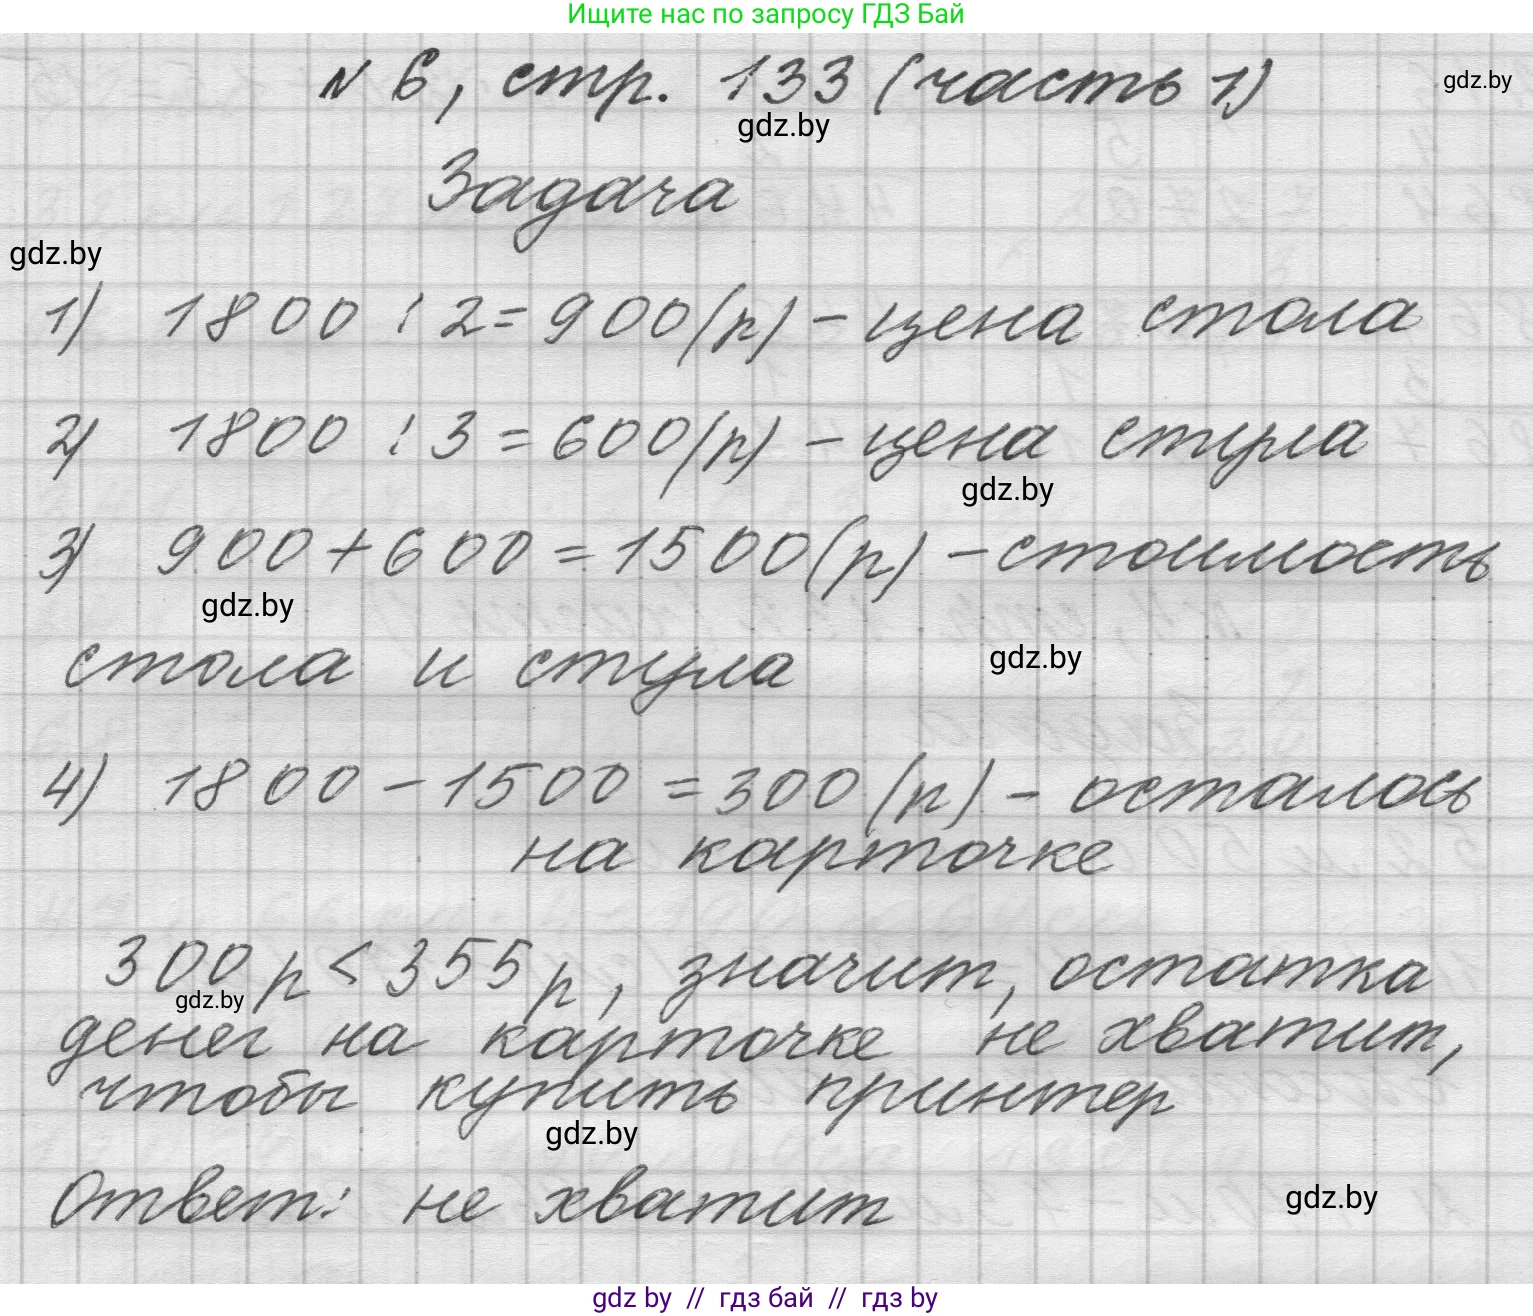 Ищите нас по запросу ГДЗ Бай
№ 6, стр. 133 (часть 1)
gdz.by
gdz.by
Задача
gdz.by
1) 1800 : 2 = 900 (р) – цена стола
2) 1800 : 3 = 600 (р) – цена стула
gdz.by
3) 900 + 600 = 1500 (р) – стоимость
gdz.by
стола и стула
gdz.by
4) 1800 – 1500 = 300 (р) – осталось
на карточке
300 р < 355 р, значит, остатка
gdz.by
денег на карточке не хватит,
чтобы купить принтер
gdz.by
Ответ: не хватит
gdz.by
gdz by // гдз бай // гдз by